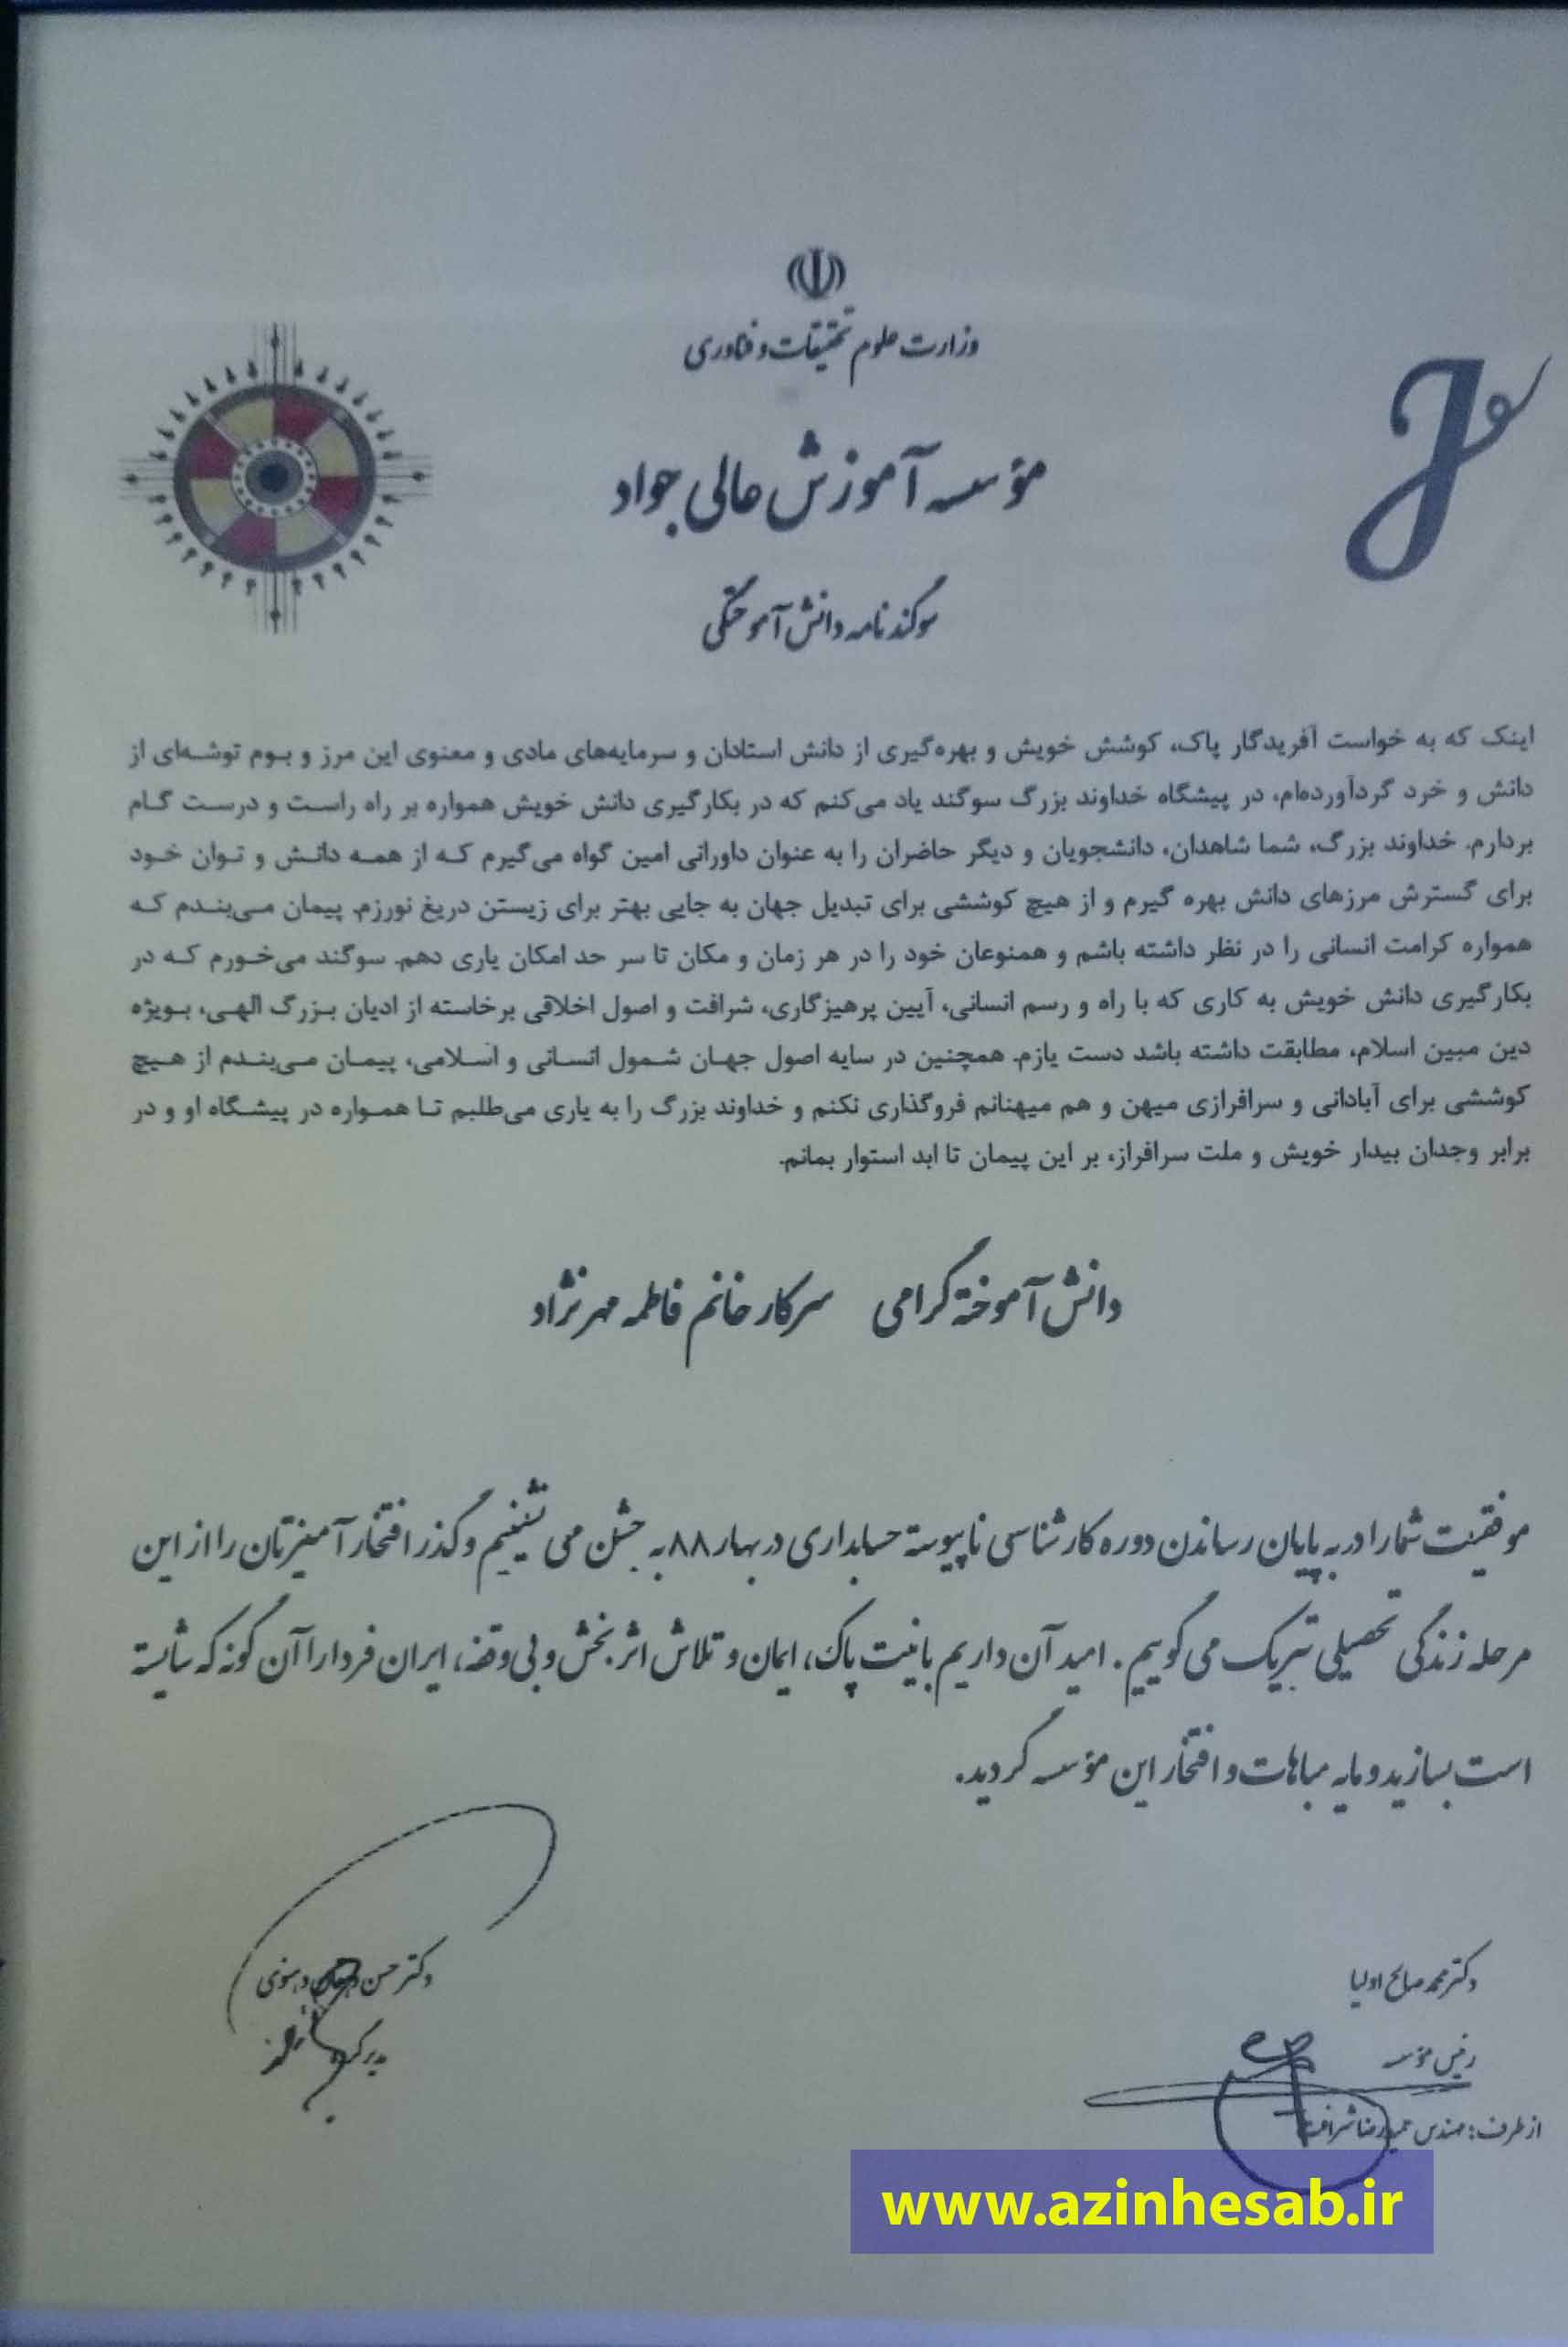 وزارت علوم تحقیقات و فناوری
مؤسسه آموزش عالی جواد
سوگندنامه دانش آموختگی
اینک که به خواست آفریدگار پاک، کوشش خویش و بهره‌گیری از دانش استادان و سرمایه‌های مادی و معنوی این مرز و بوم توشه‌ای از
دانش و خرد گردآورده‌ام، در پیشگاه خداوند بزرگ سوگند یاد می‌کنم که در بکارگیری دانش خویش همواره بر راه راست و درست گام
بردارم. خداوند بزرگ، شما شاهدان، دانشجویان و دیگر حاضران را به عنوان داورانی امین گواه می‌گیرم که از همه دانش و توان خود
برای گسترش مرزهای دانش بهره گیرم و از هیچ کوششی برای تبدیل جهان به جایی بهتر برای زیستن دریغ نورزم. پیمان می‌بندم که
همواره کرامت انسانی را در نظر داشته باشم و همنوعان خود را در هر زمان و مکان تا سر حد امکان یاری دهم. سوگند می‌خورم که در
بکارگیری دانش خویش به کاری که با راه و رسم انسانی، آیین پرهیزگاری، شرافت و اصول اخلاقی برخاسته از ادیان بزرگ الهی، بویژه
دین مبین اسلام، مطابقت داشته باشد دست یازم. همچنین در سایه اصول جهان شمول انسانی و اسلامی، پیمان می‌بندم از هیچ
کوششی برای آبادانی و سرافرازی میهن و هم میهنانم فروگذاری نکنم و خداوند بزرگ را به یاری می‌طلبم تا همواره در پیشگاه او و در
برابر وجدان بیدار خویش و ملت سرافراز، بر این پیمان تا ابد استوار بمانم.
دانش آموخته گرامی سرکار خانم فاطمه مهرنژاد
موفقیت شما را در به پایان رساندن دوره کارشناسی ناپیوسته حسابداری در بهار ۸۸ به جشن می نشینیم و گذر افتخارآمیزتان را از این
مرحله زندگی تحصیلی تبریک می گوییم. امید آن داریم با نیت پاک، ایمان و تلاش اثربخش و بی وقفه، ایران فردا را آن گونه که شایسته
است بسازید و مایه مباهات و افتخار این مؤسسه گردید.
دکتر محمد صالح اولیا
رئیس مؤسسه
از طرف: مهندس حمیدرضا شرافت
دکتر حسن دهقان دهنوی
مدیر گروه
www.azinhesab.ir